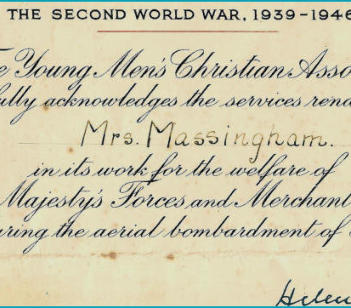 THE SECOND WORLD WAR, 1939-1946
Young Men's Christian Asso
fully acknowledges the services rend
Mrs. Massingham.
in its work for the welfare of
Majesty's Forces and Merchant
during the aerial bombardment of
Helen